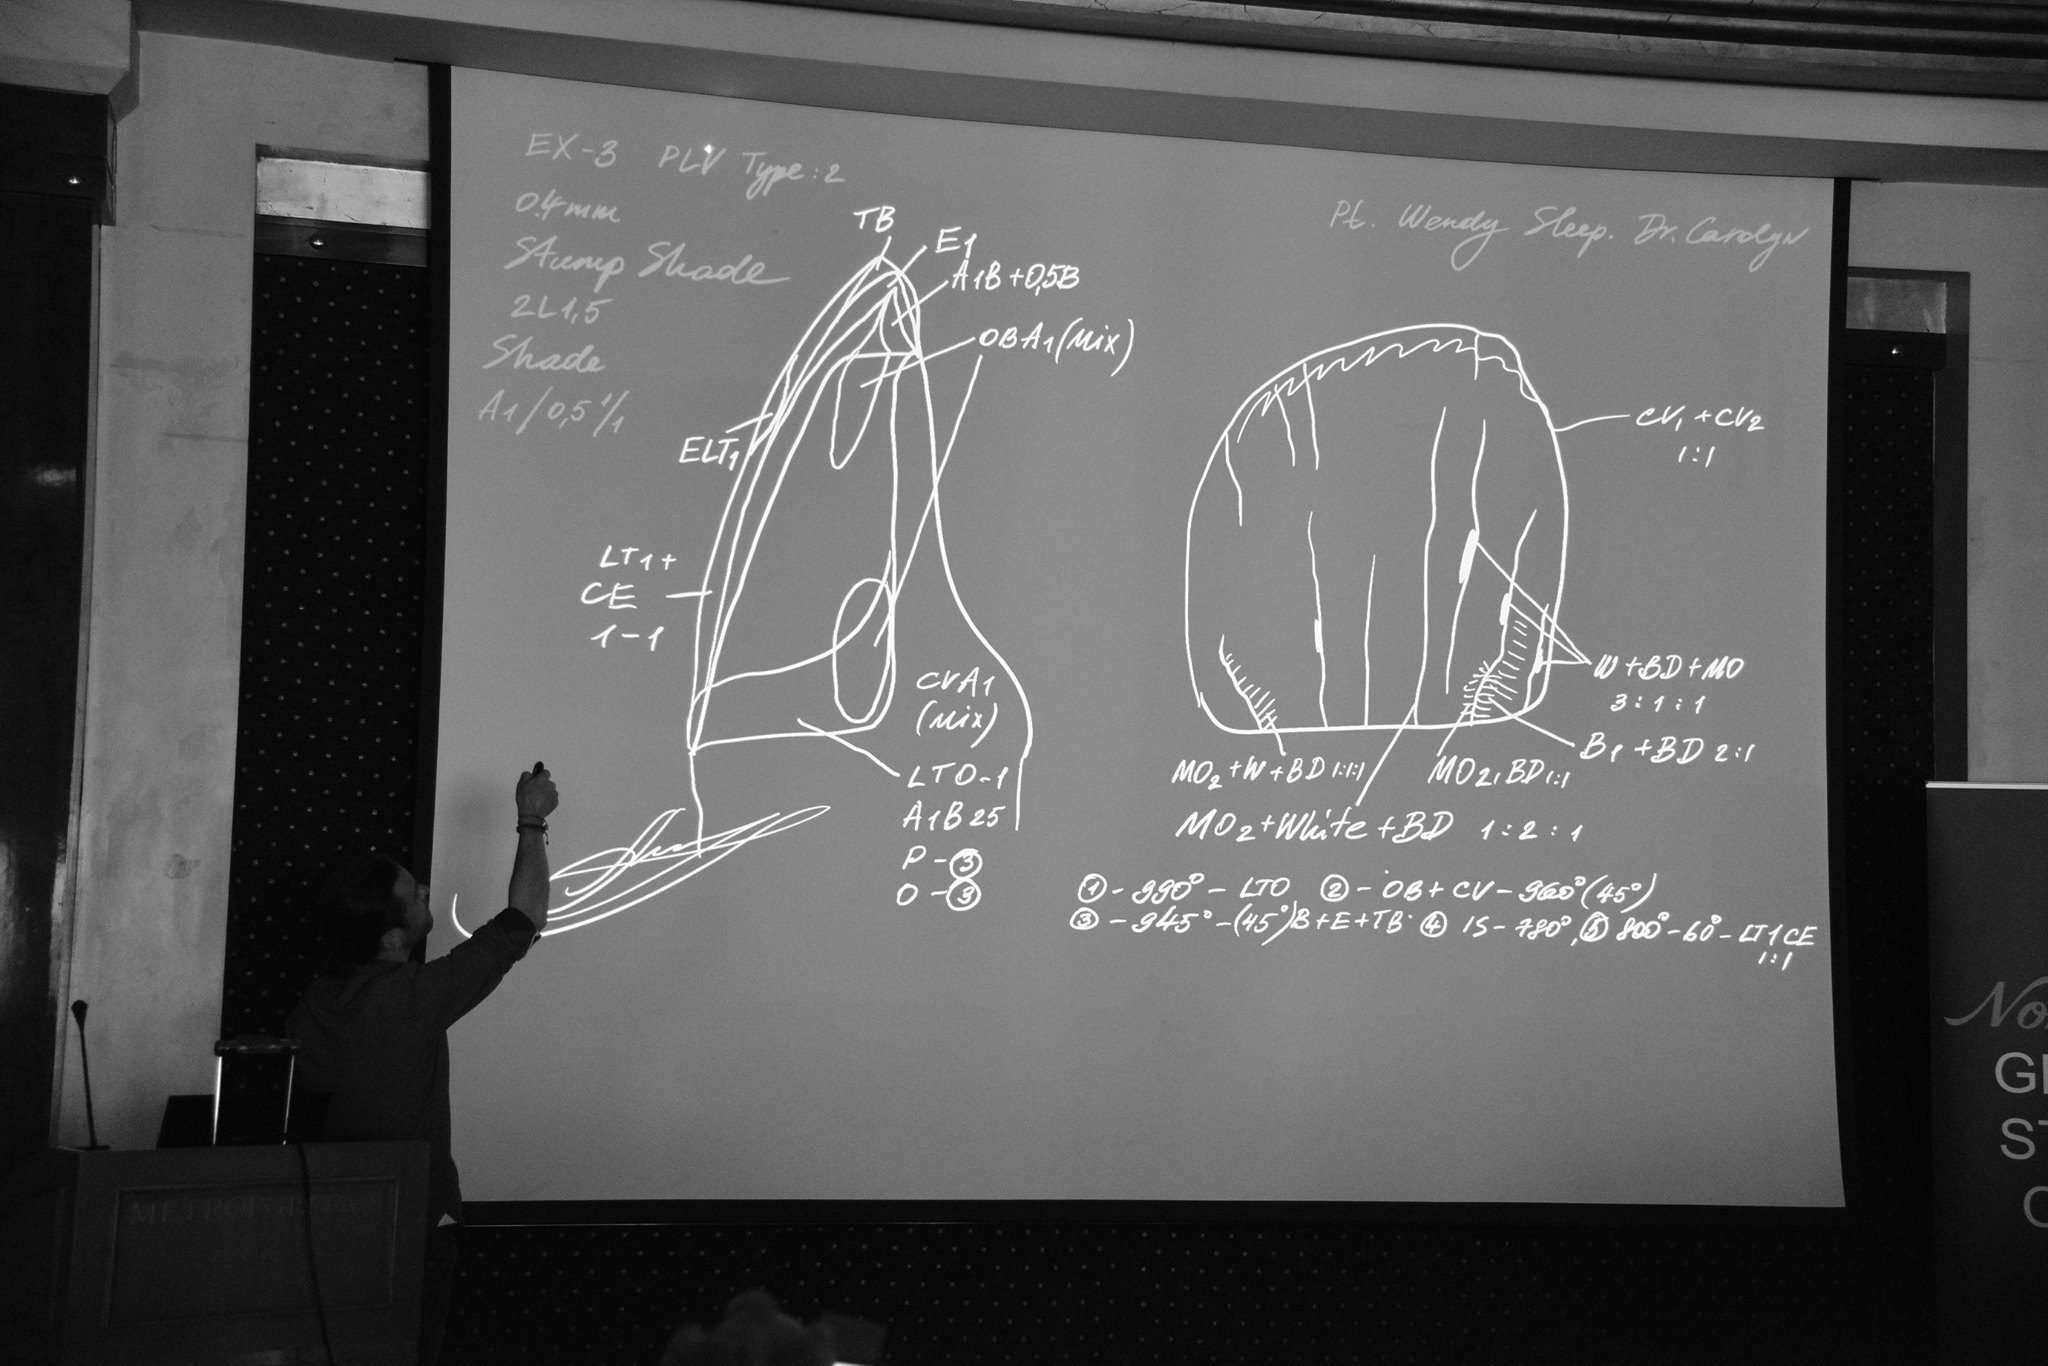 EX-3 PLV Type:2
0.4mm
Stump Shade
2L1,5
Shade
A1/0,5 1/1
TB
E1
A1B+0,5B
OBA1(Mix)
ELT1
LT1+
CE
1-1
CVA1
(Mix)
LTO-1
A1B25
P-③
O-③
Pt. Wendy Sleep. Dr. Carolyn
CV1+CV2
1:1
W+BD+MO
3:1:1
B1+BD 2:1
MO2+W+BD 1:1:1
MO2,BD 1:1
MO2+White+BD 1:2:1
①-990°-LTO ②-OB+CV-960°(45°)
③-945°-(45°)B+E+TB ④ IS-780°, ⑤ 800°-60°-LT1CE
1:1
METROPOLITAN